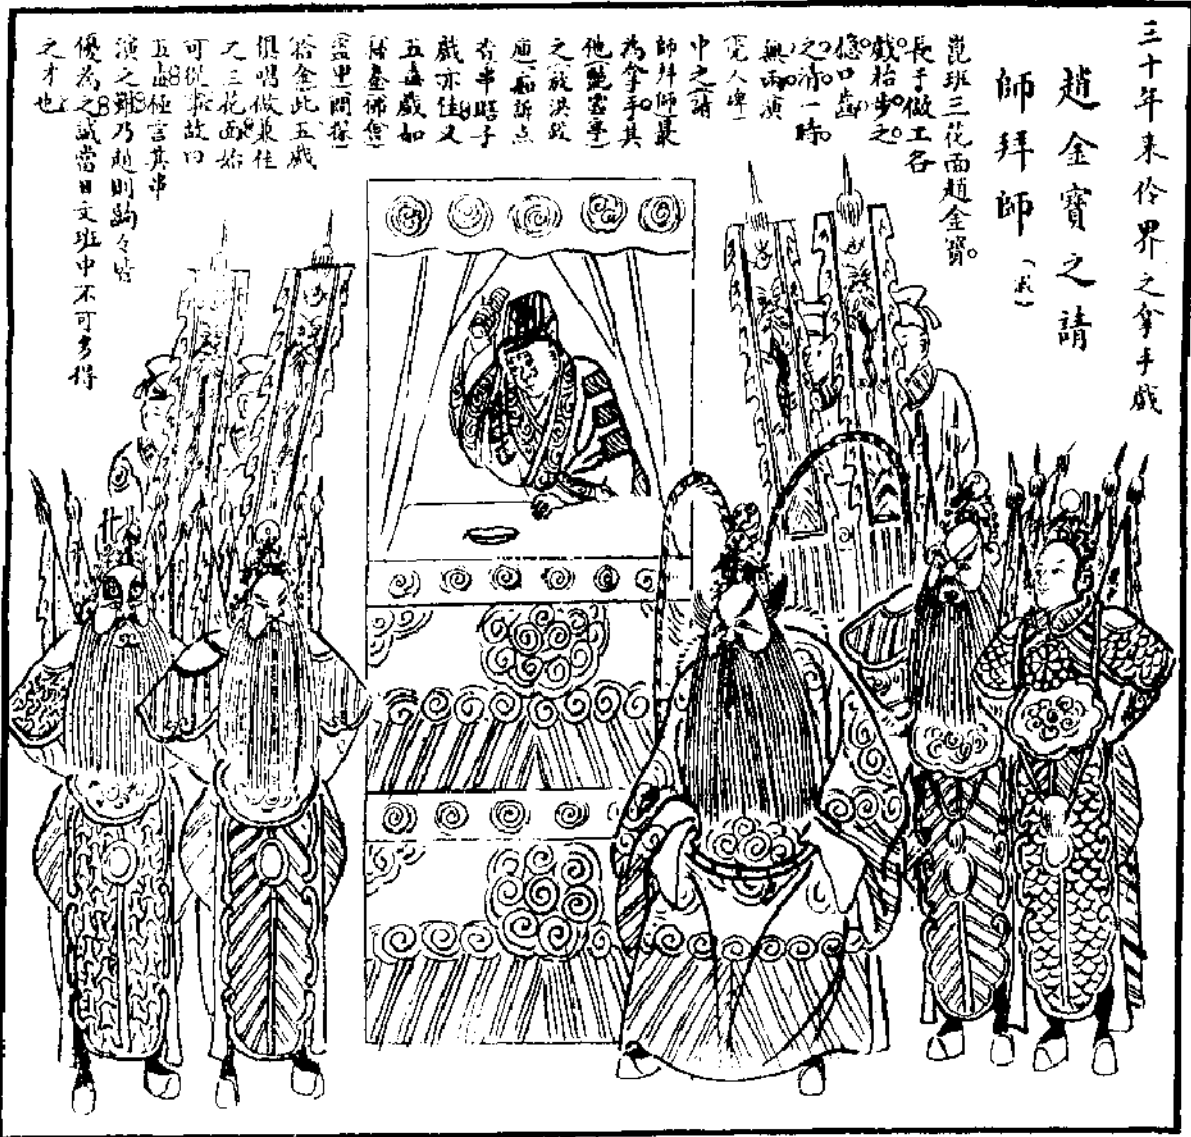 三十年来伶界之拿手戲
趙金寶之請
師拜師（戲）
崑班三花面趙金寶。
長于做工各
戲。枱步之。
穩。口齒
之清。一時。
無兩演
中之（請
師拜師）最
為拿手。其
他
之
廟）如訴点
者串瞎子
戲亦佳又
五毒戲如
拾金）此五戲
俱唱做兼佳
又三花面始
可從事故曰
五毒極言其串
演之難乃趙則
優為之誠當日文班中不可多得
之才也